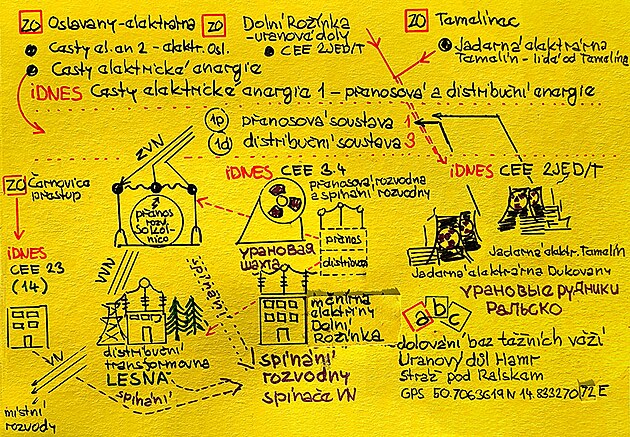 ZO Oslavany-elektrárna
ZO Dolní Rožínka
-uranové doly
ZO Temelínec
Časty el.en 2 - elektr. Osl.
CEE 2JED/T
Jaderná elektrárna
Temelín - lidé od Temelína
Časty elektrické energie
iDNES Časty elektrická energie 1 - přenosová a distribuční energie
1p přenosová soustava 1
1d distribuční soustava 3
ZVN
iDNES CEE 3.4
iDNES CEE 2JED/T
přenosová rozvodna
a spínání rozvodny
ZO Černovice
přestup
přenos
rozv.
Sokolnice
урановая
шахта
přenos
distribuce
Jaderná elektr. Temelín
Jaderná elektrárna Dukovany
урановые рудники
Ральско
iDNES
CEE 23
(14)
VVN
spínání
měnírna
elektřiny
Dolní
Rožínka
a b c
dolování bez těžních věží
Uranový důl Hamr
Stráž pod Ralskem
GPS 50.7063619N 14.8332707 72E
VN
distribuční
transformovna
LESNÁ
spínání
spínání
rozvodny
spínače VN
místní
rozvody